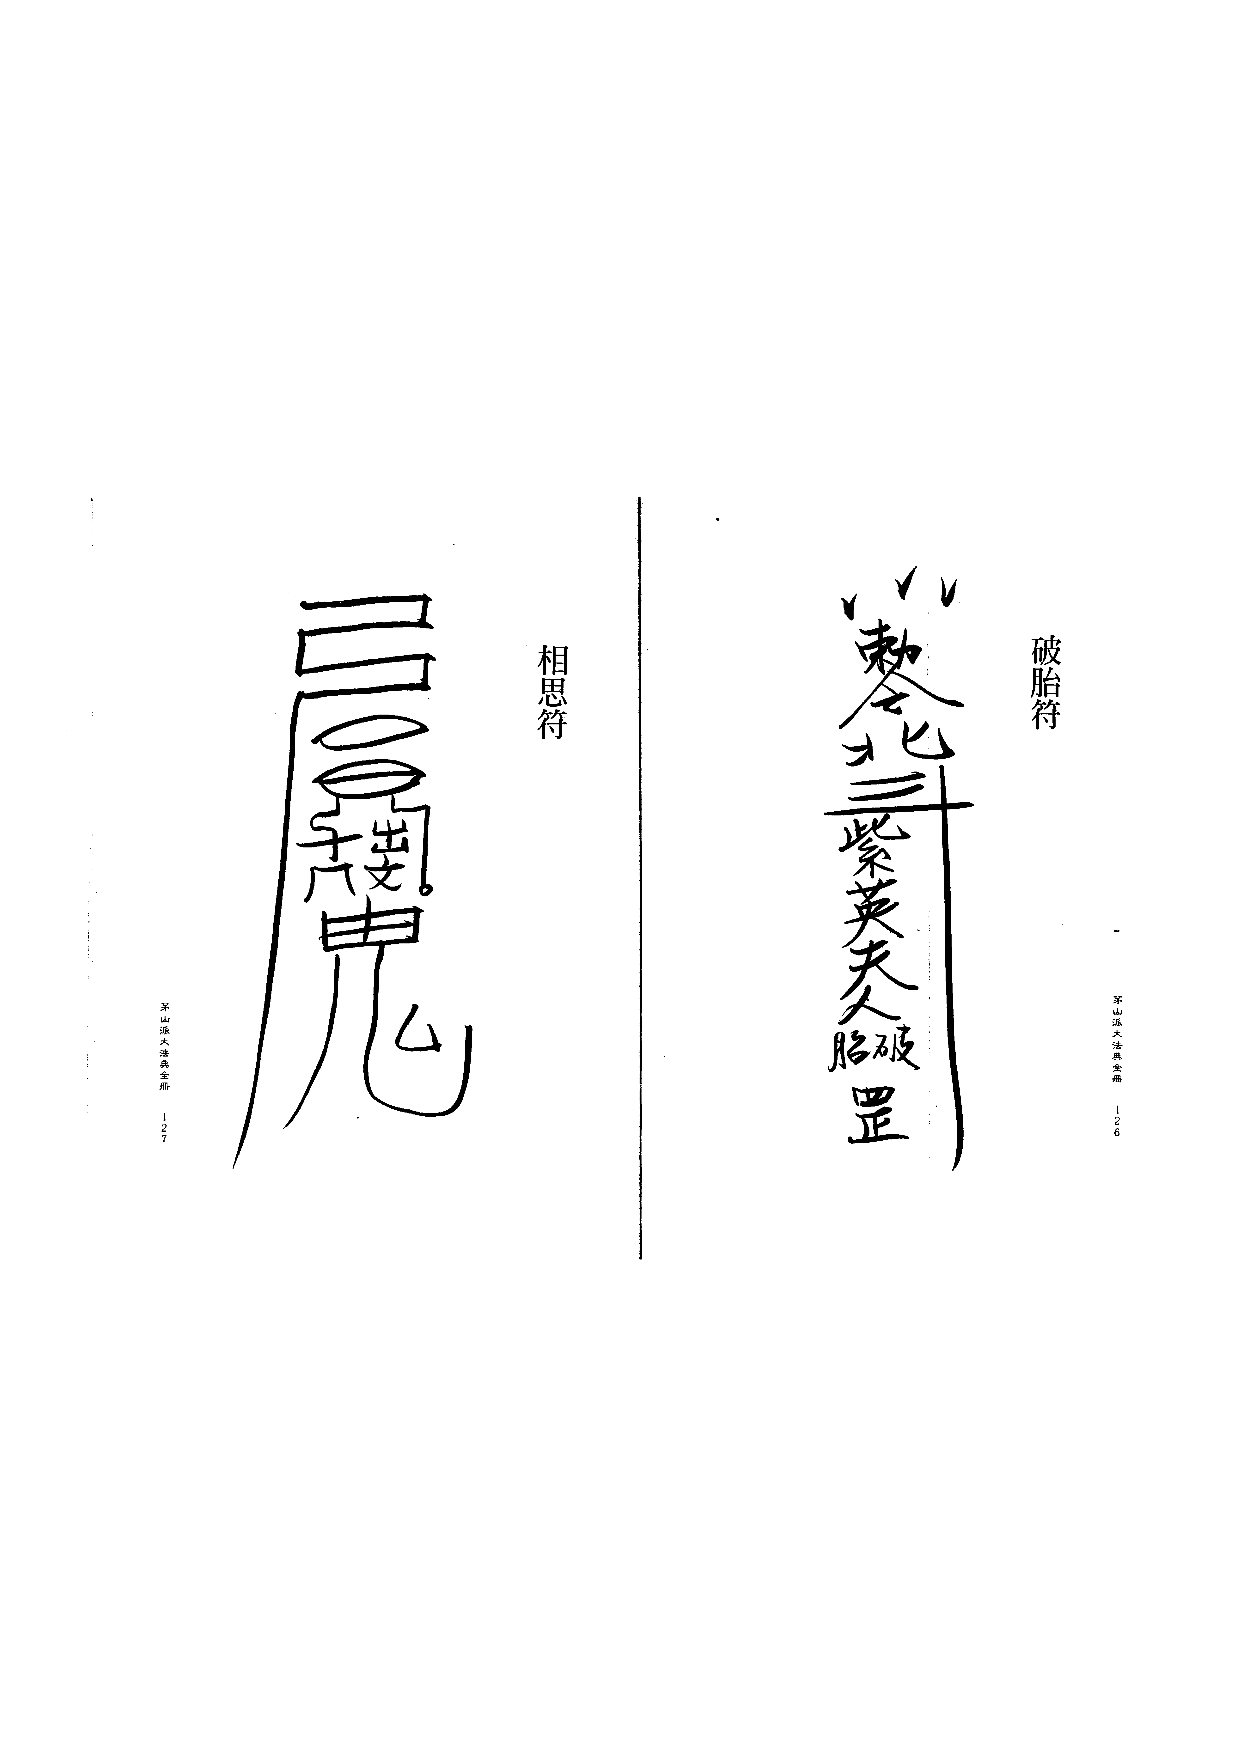 破胎符
勅令北斗紫英夫人破胎罡
茅山派大法典全冊 126
相思符
茅山派大法典全冊 127